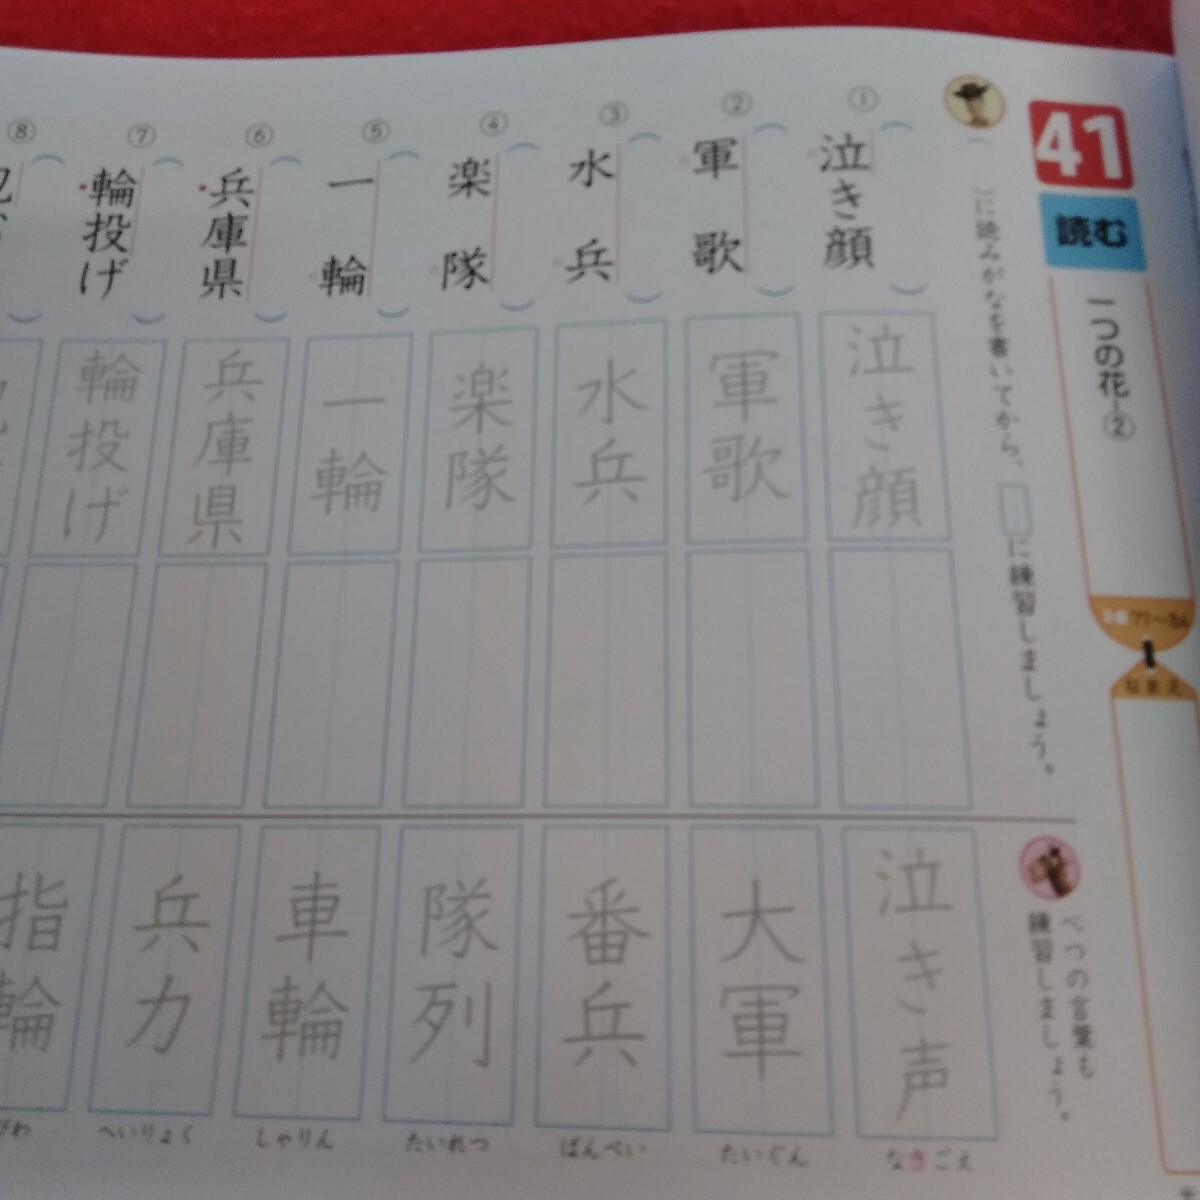 41
読む
一つの花-②
77〜84
なまえ
( )に読みがなを書いてから、□に練習しましょう。
① 泣き顔
② 軍歌
③ 水兵
④ 楽隊
⑤ 一輪
⑥ 兵庫県
⑦ 輪投げ
⑧
泣き顔
軍歌
水兵
楽隊
一輪
兵庫県
輪投げ
べつの言葉も
練習しましょう。
泣き声
なきごえ
大軍
たいぐん
番兵
ばんぺい
隊列
たいれつ
車輪
しゃりん
兵力
へいりょく
指輪
びわ